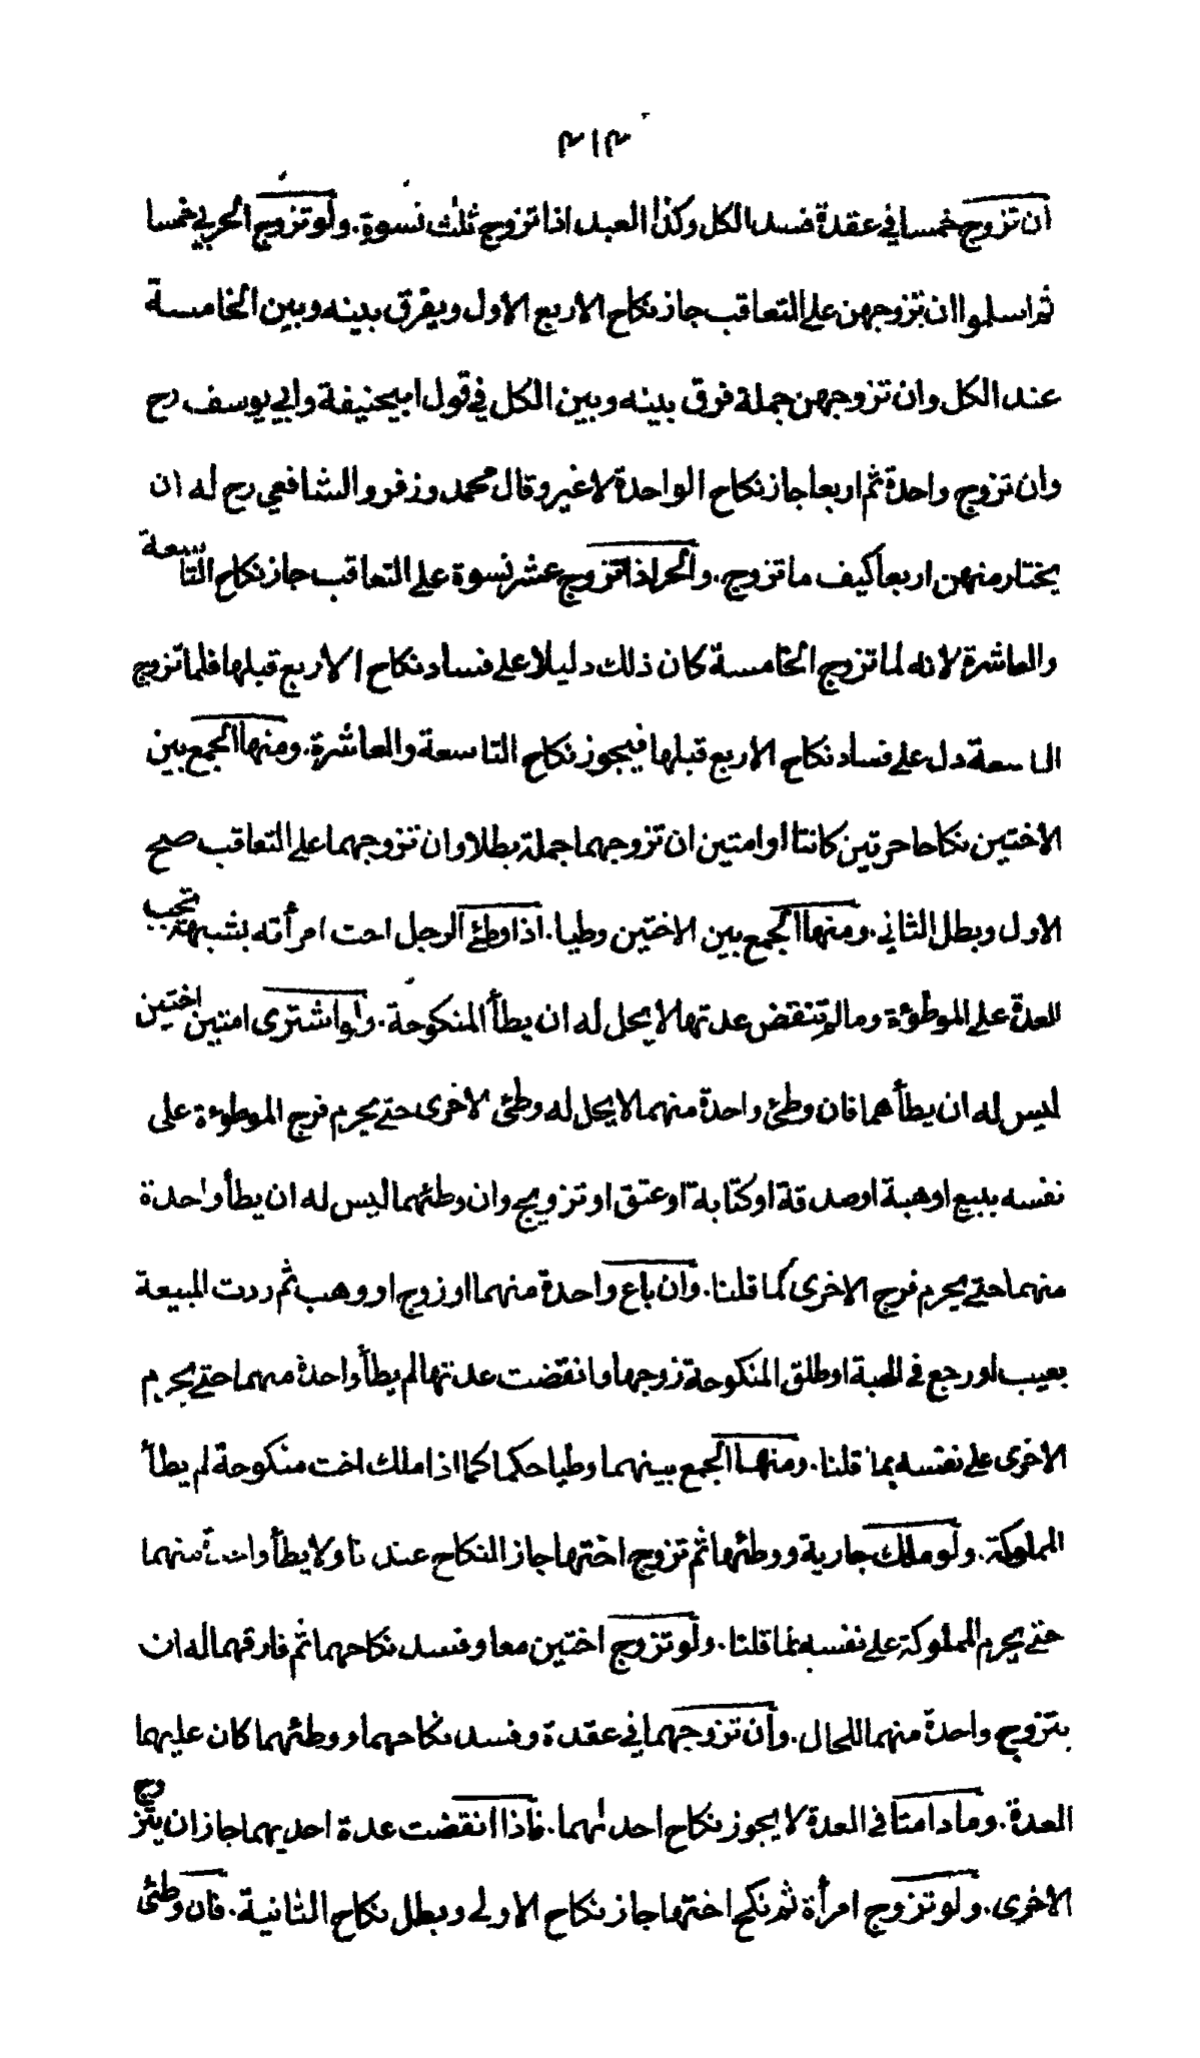 ٣١٣
ان تزوج خمسا في عقدة فسد الكل وكذا العبد اذا تزوج ثلث نسوة. ولو تزوج الحربي خمسا
ثم اسلموا ان تزوجهن على التعاقب جاز نكاح الاربع الاول ويفرق بينه وبين الخامسة
عند الكل وان تزوجهن جملة فرق بينه وبين الكل في قول ابيحنيفة وابي يوسف رح
وان تزوج واحدة ثم اربعا جاز نكاح الواحدة لا غير وقال محمد وزفر والشافعي رح له ان
يختار منهن اربعا كيف ما تزوج. والحر اذا تزوج عشر نسوة على التعاقب جاز نكاح التاسعة
والعاشرة لانه لما تزوج الخامسة كان ذلك دليلا على فساد نكاح الاربع قبلها فلما تزوج
التاسعة دل على فساد نكاح الاربع قبلها فيجوز نكاح التاسعة والعاشرة. ومنها الجمع بين
الاختين نكاحا حرتين كانتا او امتين ان تزوجهما جملة بطلا وان تزوجهما على التعاقب صح
الاول وبطل الثاني. ومنها الجمع بين الاختين وطيا. اذا وطئ الرجل اخت امرأته بشبهة تجب
العدة على الموطوءة وما لم تنقض عدتها لا يحل له ان يطأ المنكوحة. ولو اشترى امتين اختين
ليس له ان يطأهما فان وطئ واحدة منهما لا يحل له وطئ الاخرى حتى يحرم فرج الموطوءة على
نفسه ببيع او هبة او صدقة او كتابة او عتق او تزويج وان وطئهما ليس له ان يطأ واحدة
منهما حتى يحرم فرج الاخرى كما قلنا. وان باع واحدة منهما او زوج او وهب ثم ردت المبيعة
بعيب او رجع في الهبة او طلق المنكوحة زوجها وانقضت عدتها لم يطأ واحدة منهما حتى يحرم
الاخرى على نفسه بما قلنا. ومنها الجمع بينهما وطيا حكما كما اذا ملك اخت منكوحة لم يطأ
المملوكة. ولو ملك جارية ووطئها ثم تزوج اختها جاز النكاح عندنا ولا يطأ واحدة منهما
حتى يحرم المملوكة على نفسه بما قلنا. ولو تزوج اختين معا وفسد نكاحهما ثم فارقهما له ان
يتزوج واحدة منهما للحال. وان تزوجهما في عقدة وفسد نكاحهما ووطئهما كان عليهما
العدة. وما دامتا في العدة لا يجوز نكاح احدٰهما. فاذا انقضت عدة احديهما جاز ان يتزوج
الاخرى. ولو تزوج امرأة ثم نكح اختها جاز نكاح الاولى وبطل نكاح الثانية. فان وطئ